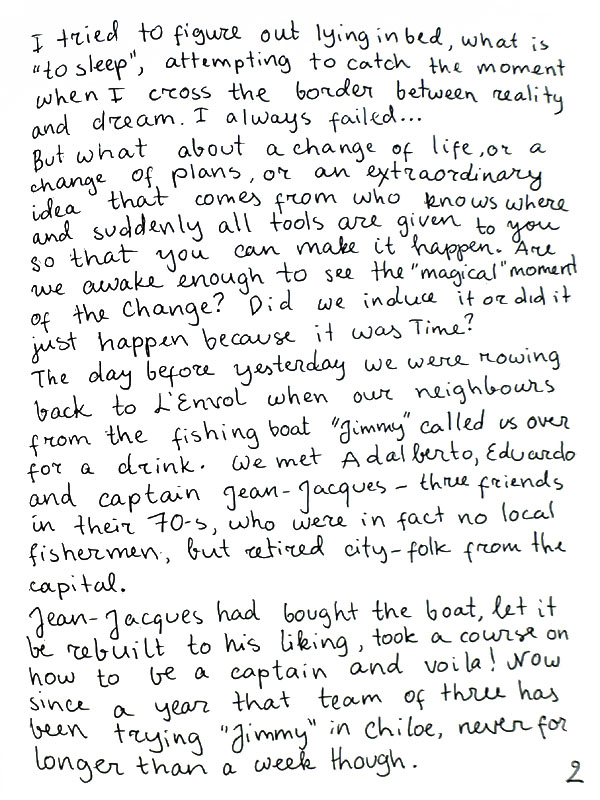 I tried to figure out lying in bed, what is
"to sleep", attempting to catch the moment
when I cross the border between reality
and dream. I always failed...
But what about a change of life, or a
change of plans, or an extraordinary
idea that comes from who knows where
and suddenly all tools are given to you
so that you can make it happen. Are
we awake enough to see the "magical" moment
of the Change? Did we induce it or did it
just happen because it was Time?
The day before yesterday we were rowing
back to L'Envol when our neighbours
from the fishing boat "Jimmy" called us over
for a drink. We met Adalberto, Eduardo
and captain Jean-Jacques - three friends
in their 70-s, who were in fact no local
fishermen, but retired city-folk from the
capital.
Jean-Jacques had bought the boat, let it
be rebuilt to his liking, took a course on
how to be a captain and voila! Now
since a year that team of three has
been trying "Jimmy" in Chiloe, never for
longer than a week though.
2